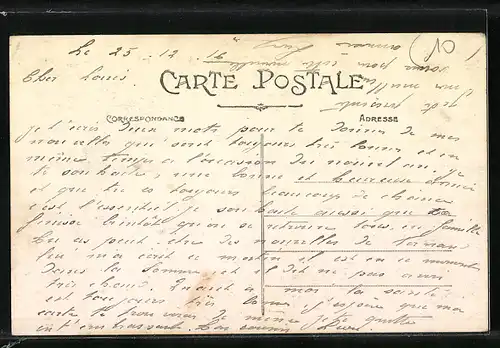 Le 25.12.16
Cher Louis
CARTE POSTALE
CORRESPONDANCE
ADRESSE
je t'écris deux mots pour te donner de mes
nouvelles qui sont toujours très bonnes et en
même temps a l'occasion du nouvel an. je
te souhaite, une bonne et heureuse année
et que tu es toujours beaucoup de chance
c'est l'essentiel je souhaite aussi que
finisse bientôt qu'on se retrouve tous en famille
tu as peut être des nouvelles de
il est en ce moment
dans la Somme et il doit ne pas avoir
très chaud. Quant a moi la santé
est toujours très bonne j'espère que ma
carte te trouvera de même je te quitte
en t'embrassant. Ton cousin
(10)